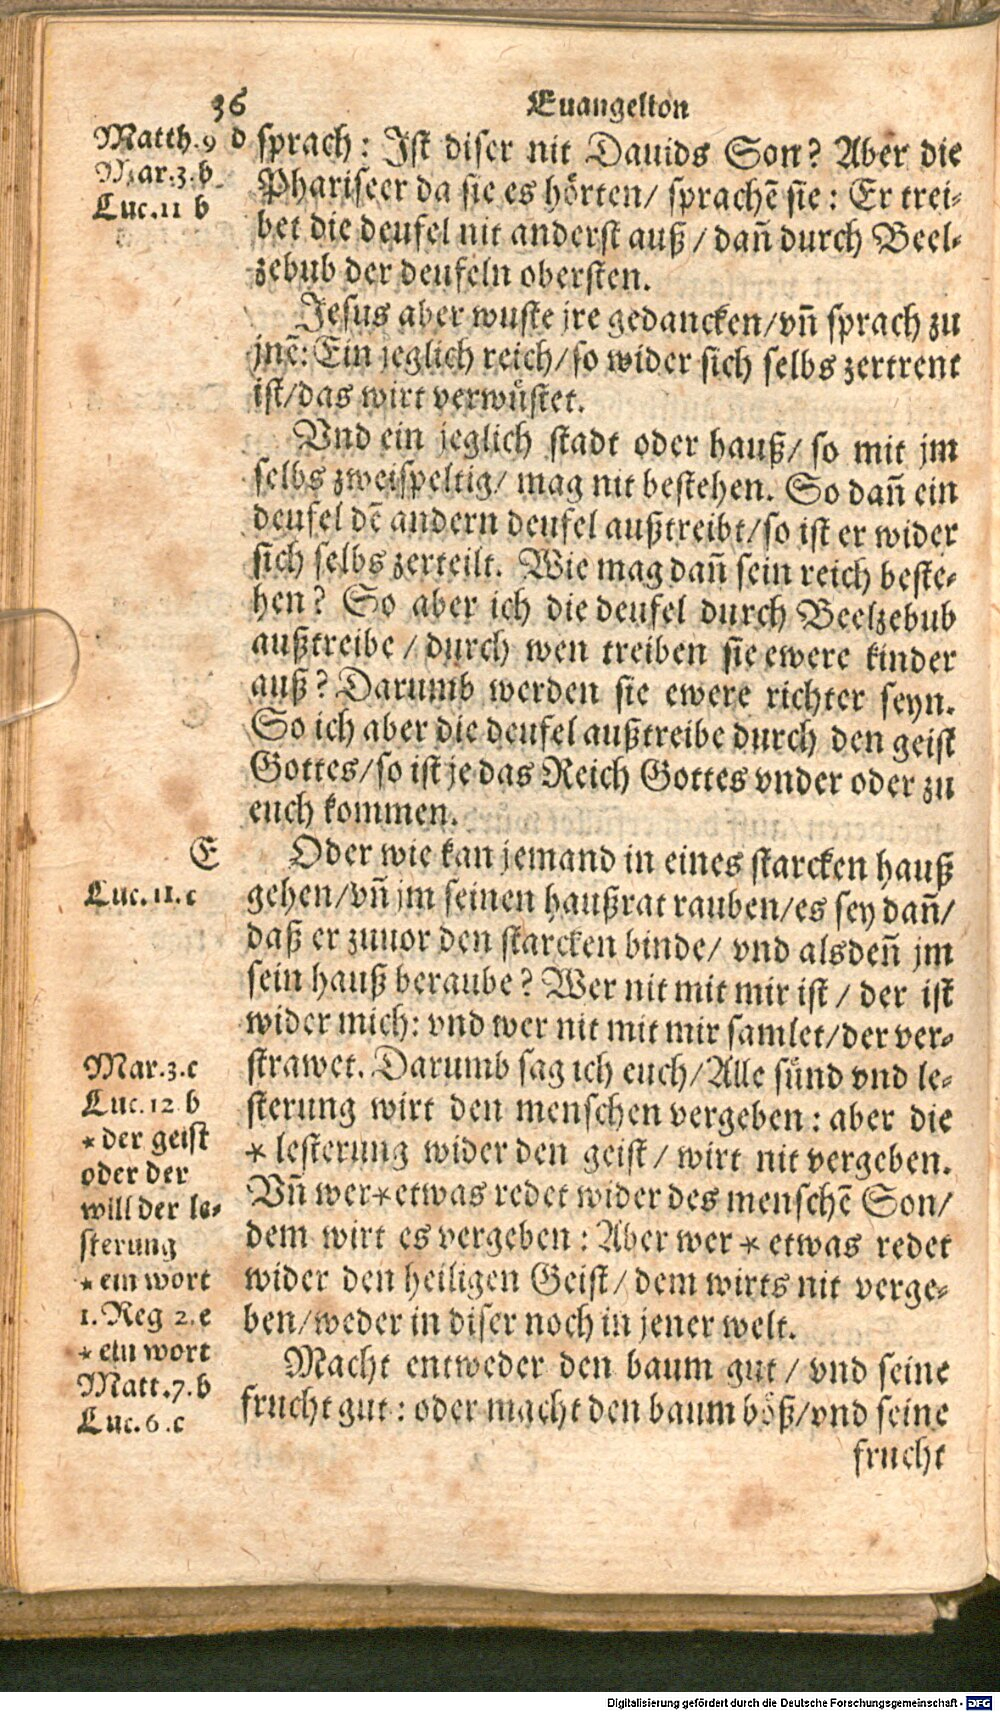 36
Euangelion
Matth.9 d
Mar.3.b
Luc.11 b
sprach: Ist diser nit Dauids Son? Aber die
Phariseer da sie es hörten/ sprachẽ sie: Er trei-
bet die deufel nit anderst auß/ dañ durch Beel-
zebub der deufeln obersten.
Jesus aber wuste jre gedancken/vñ sprach zu
jnẽ: Ein jeglich reich/so wider sich selbs zertrent
ist/das wirt verwüstet.
Vnd ein jeglich stadt oder hauß/ so mit jm
selbs zweispeltig/ mag nit bestehen. So dañ ein
deufel dẽ andern deufel außtreibt/so ist er wider
sich selbs zerteilt. Wie mag dañ sein reich beste-
hen? So aber ich die deufel durch Beelzebub
außtreibe/ durch wen treiben sie ewere kinder
auß? Darumb werden sie ewere richter seyn.
So ich aber die deufel außtreibe durch den geist
Gottes/so ist je das Reich Gottes vnder oder zu
euch kommen.
E
Luc.11.c
Oder wie kan jemand in eines starcken hauß
gehen/vñ jm seinen haußrat rauben/es sey dañ/
daß er zuuor den starcken binde/ vnd alsdeñ jm
sein hauß beraube? Wer nit mit mir ist/ der ist
wider mich: vnd wer nit mit mir samlet/der ver-
strawet. Darumb sag ich euch/Alle sünd vnd le-
sterung wirt den menschen vergeben: aber die
* lesterung wider den geist/ wirt nit vergeben.
Vñ wer*etwas redet wider des menschẽ Son/
dem wirt es vergeben: Aber wer * etwas redet
wider den heiligen Geist/ dem wirts nit verge-
ben/weder in diser noch in jener welt.
Mar.3.c
Luc.12 b
* der geist
oder der
will der le-
sterung
* ein wort
1.Reg 2.e
* ein wort
Matt.7.b
Luc.6.c
Macht entweder den baum gut/ vnd seine
frucht gut: oder macht den baum böß/vnd seine
frucht
Digitalisierung gefördert durch die Deutsche Forschungsgemeinschaft - DFG